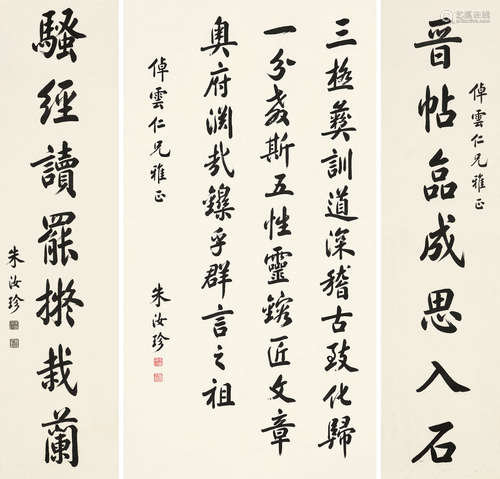 晉帖臨成思入石
倬雲仁兄雅正
三極彝訓道深稽古致化歸
一分教斯五性靈鎔匠文章
奧府淵哉鑠乎群言之祖
倬雲仁兄雅正
朱汝珍
騷經讀罷擬栽蘭
朱汝珍